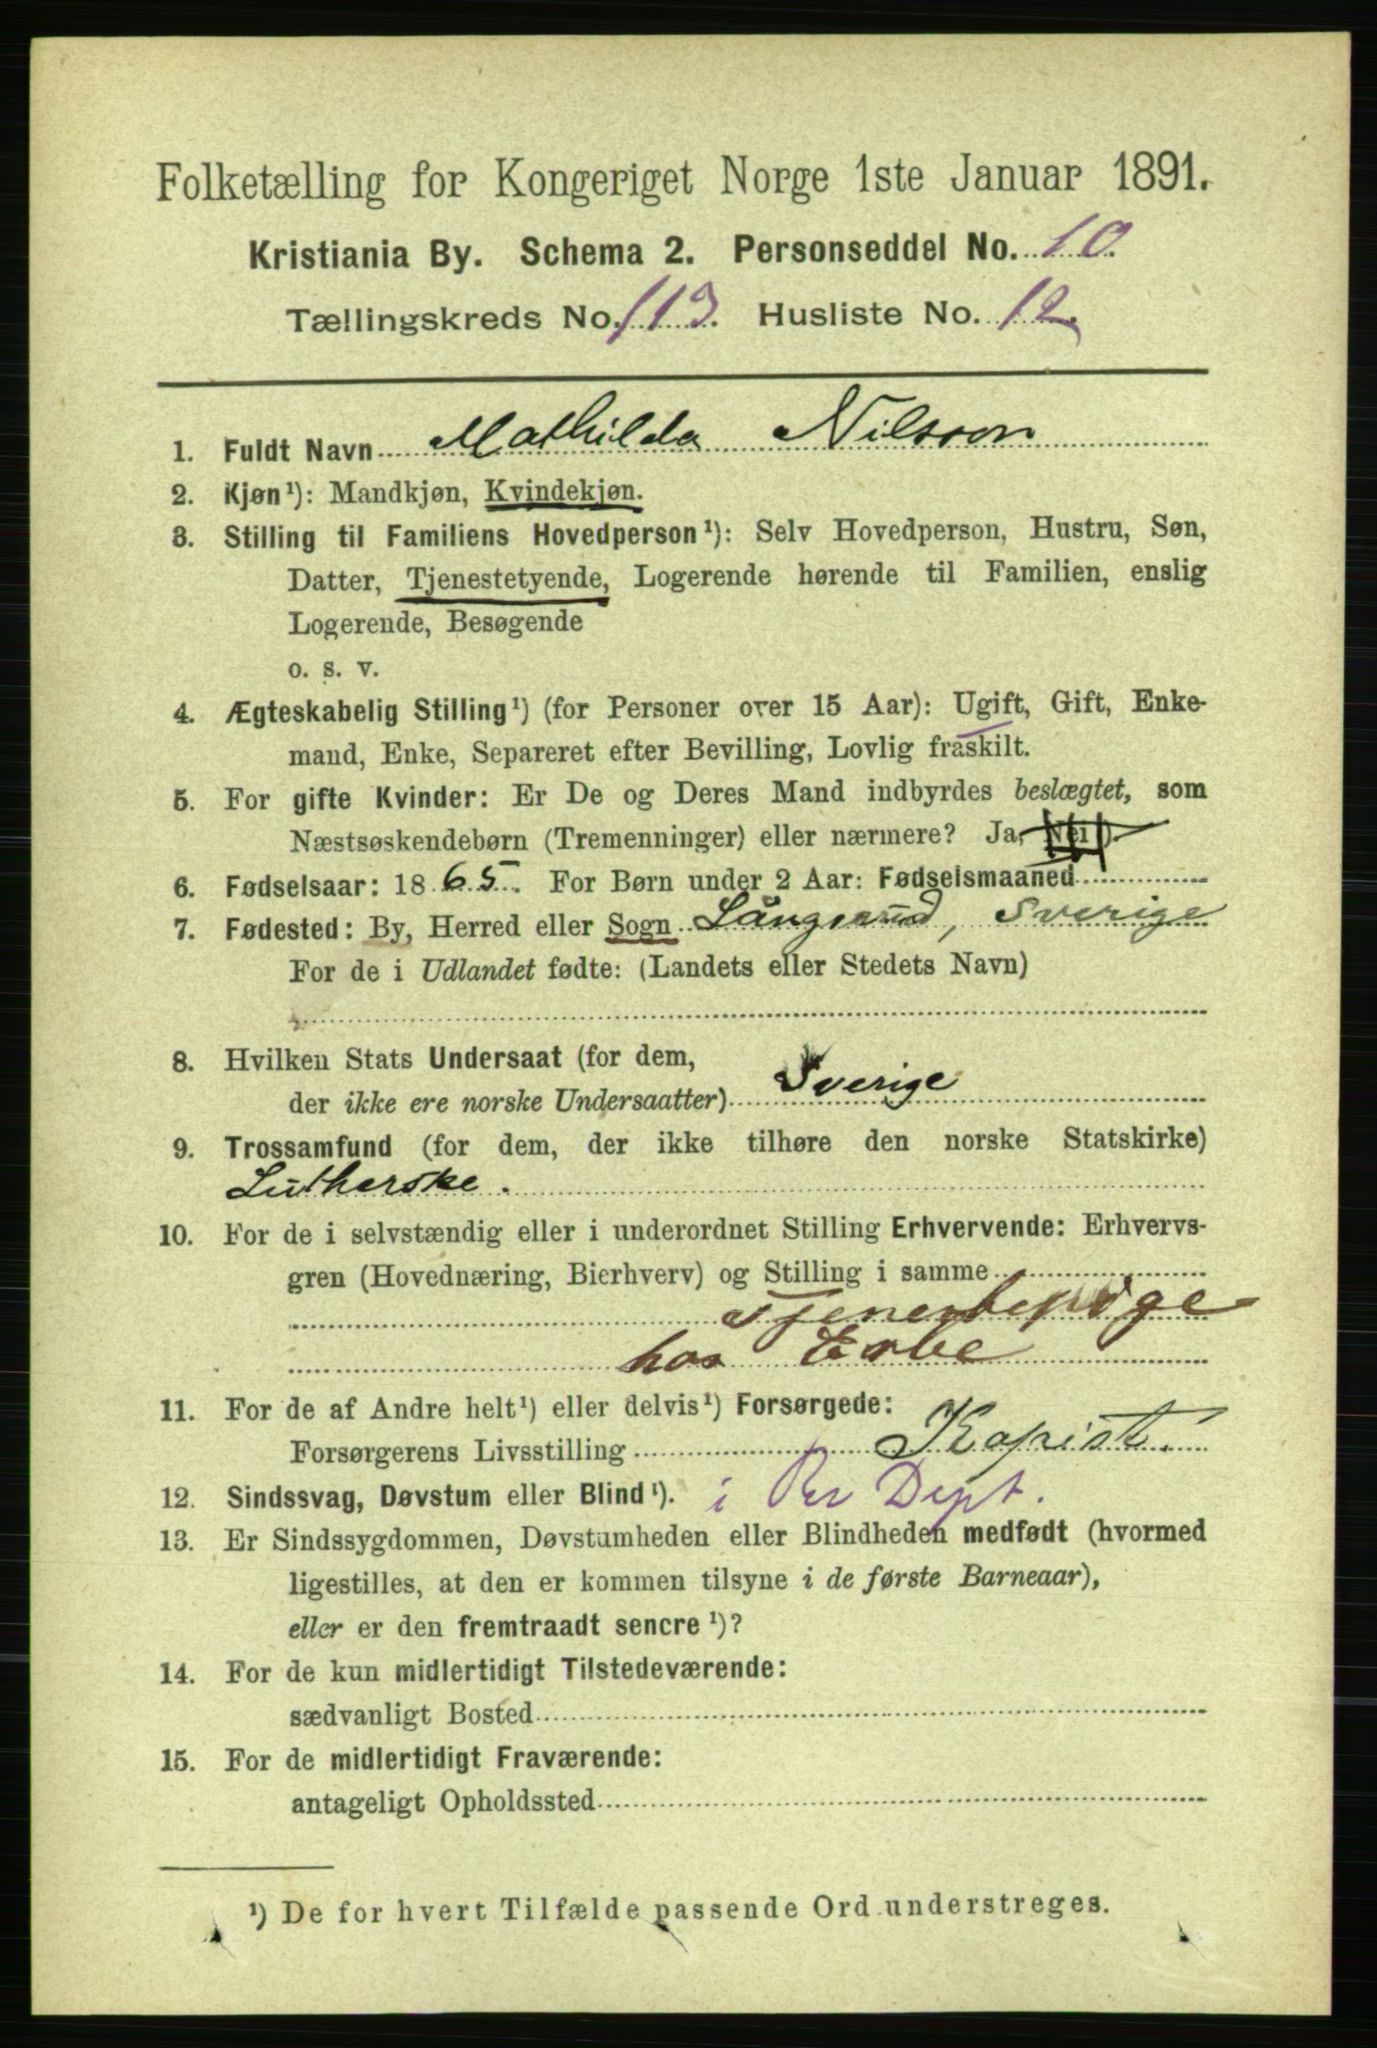 Folketælling for Kongeriget Norge 1ste Januar 1891.
Kristiania By. Schema 2. Personseddel No. 10.
Tællingskreds No. 113. Husliste No. 12.
1. Fuldt Navn Mathilda Nilsson
2. Kjøn¹): Mandkjøn, Kvindekjøn.
3. Stilling til Familiens Hovedperson¹): Selv Hovedperson, Hustru, Søn,
Datter, Tjenestetyende, Logerende hørende til Familien, enslig
Logerende, Besøgende
o. s. v.
4. Ægteskabelig Stilling¹) (for Personer over 15 Aar): Ugift, Gift, Enke-
mand, Enke, Separeret efter Bevilling, Lovlig fraskilt.
5. For gifte Kvinder: Er De og Deres Mand indbyrdes beslægtet, som
Næstsøskendebørn (Tremenninger) eller nærmere? Ja, Nei¹).
6. Fødselsaar: 1865. For Børn under 2 Aar: Fødselsmaaned
7. Fødested: By, Herred eller Sogn Långserud, Sverige
For de i Udlandet fødte: (Landets eller Stedets Navn)
8. Hvilken Stats Undersaat (for dem,
der ikke ere norske Undersaatter) Sverige
9. Trossamfund (for dem, der ikke tilhøre den norske Statskirke)
Lutherske.
10. For de i selvstændig eller i underordnet Stilling Erhvervende: Erhvervs-
gren (Hovednæring, Bierhverv) og Stilling i samme
Tjenestepige
hos
11. For de af Andre helt¹) eller delvis¹) Forsørgede:
Forsørgerens Livsstilling Kopist.
12. Sindssvag, Døvstum eller Blind¹). i Rev Dept.
13. Er Sindssygdommen, Døvstumheden eller Blindheden medfødt (hvormed
ligestilles, at den er kommen tilsyne i de første Barneaar),
eller er den fremtraadt senere¹)?
14. For de kun midlertidigt Tilstedeværende:
sædvanligt Bosted
15. For de midlertidigt Fraværende:
antageligt Opholdssted
¹) De for hvert Tilfælde passende Ord understreges.